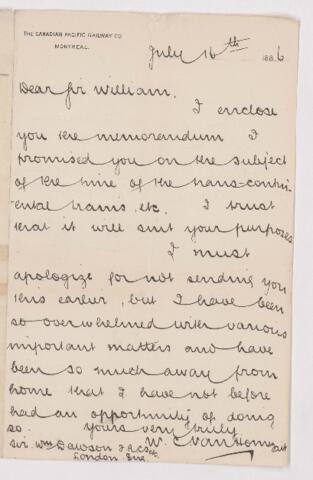 THE CANADIAN PACIFIC RAILWAY CO
MONTREAL.
July 16th 1886
Dear Sir William,
I enclose
you the memorandum I
promised you on the subject
of the time of the trans-contin-
ental trains, etc. I trust
that it will suit your purposes
I must
apologize for not sending you
this earlier, but I have been
so overwhelmed with various
important matters and have
been so much away from
home that I have not before
had an opportunity of doing
so. Yours very truly
W. C Van Horne
Sir. Wm Dawson
London Eng.